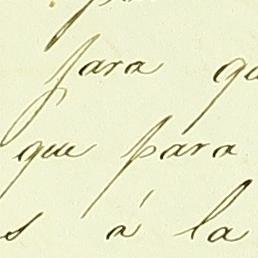 para qu
que para
s á la